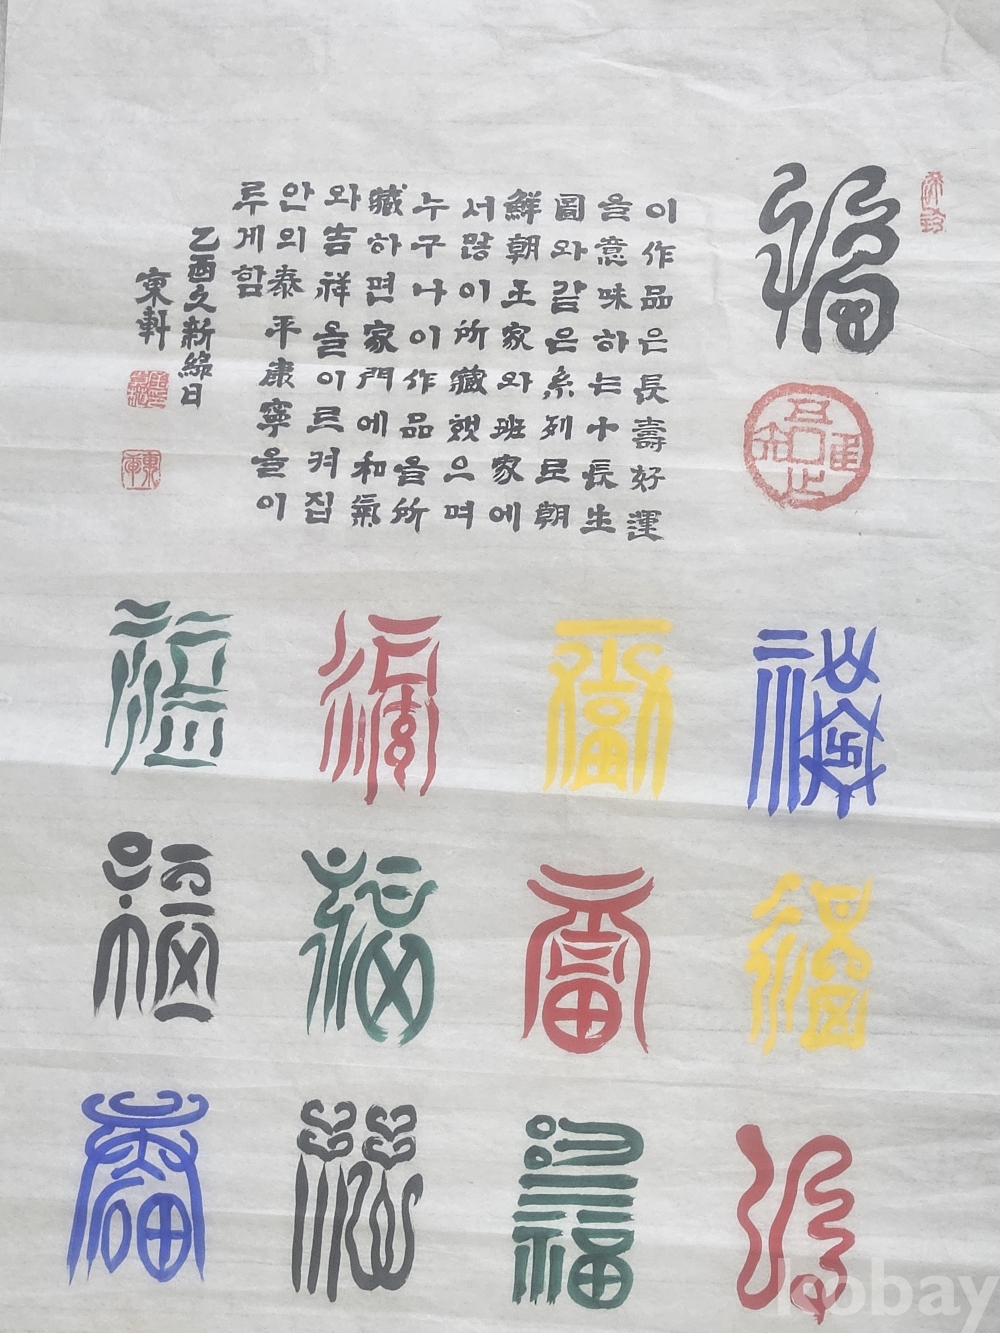 福
吾唯知足
이作品은長壽好運
을意味하는十長生
圖와같은系列로朝
鮮朝王家와班家에
서많이所藏했으며
누구나이作品을所
藏하면家門에和氣
와吉祥을이르켜집
안의泰平康寧을이
루게함
乙酉久新綠日
軒
福 福 福 福
福 福 福 福
福 福 福 福
kobay